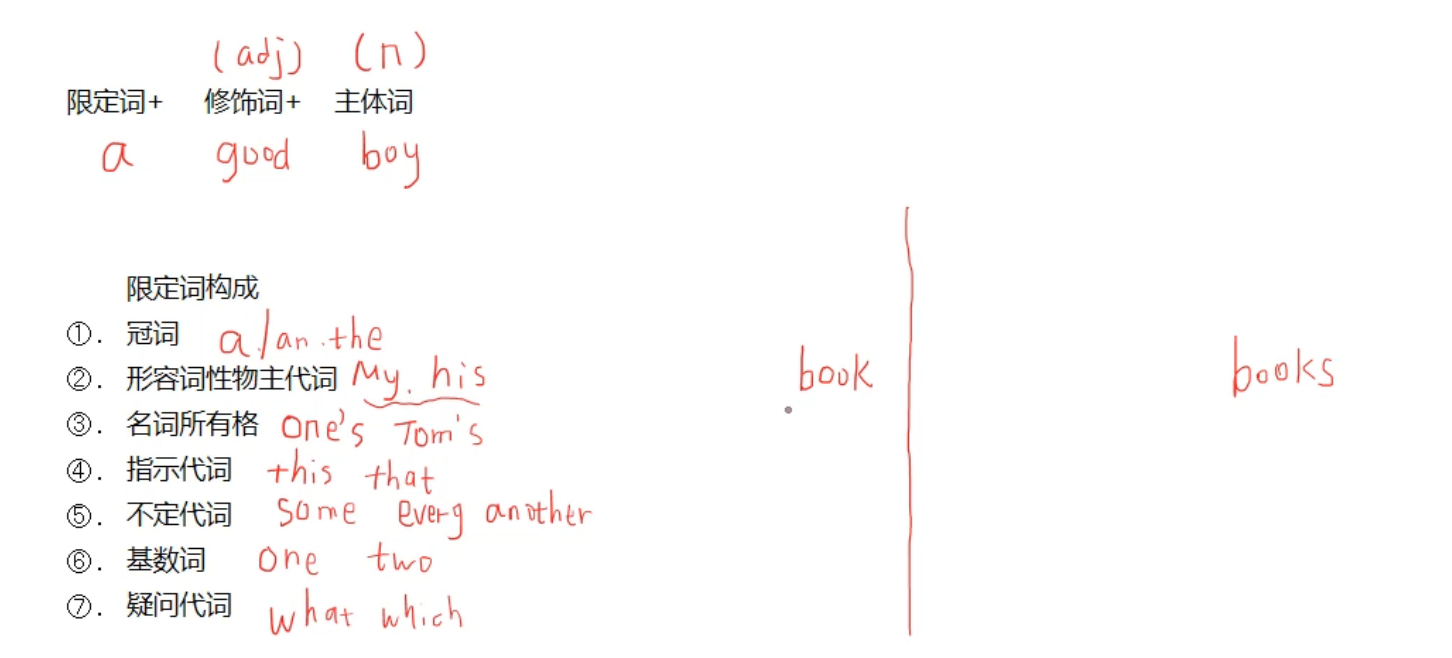 (adj) (n)
限定词+ 修饰词+ 主体词
a good boy
限定词构成
①. 冠词 a/an.the
②. 形容词性物主代词 My. his
③. 名词所有格 one's Tom's
④. 指示代词 this that
⑤. 不定代词 some every another
⑥. 基数词 one two
⑦. 疑问代词 what which
book
books